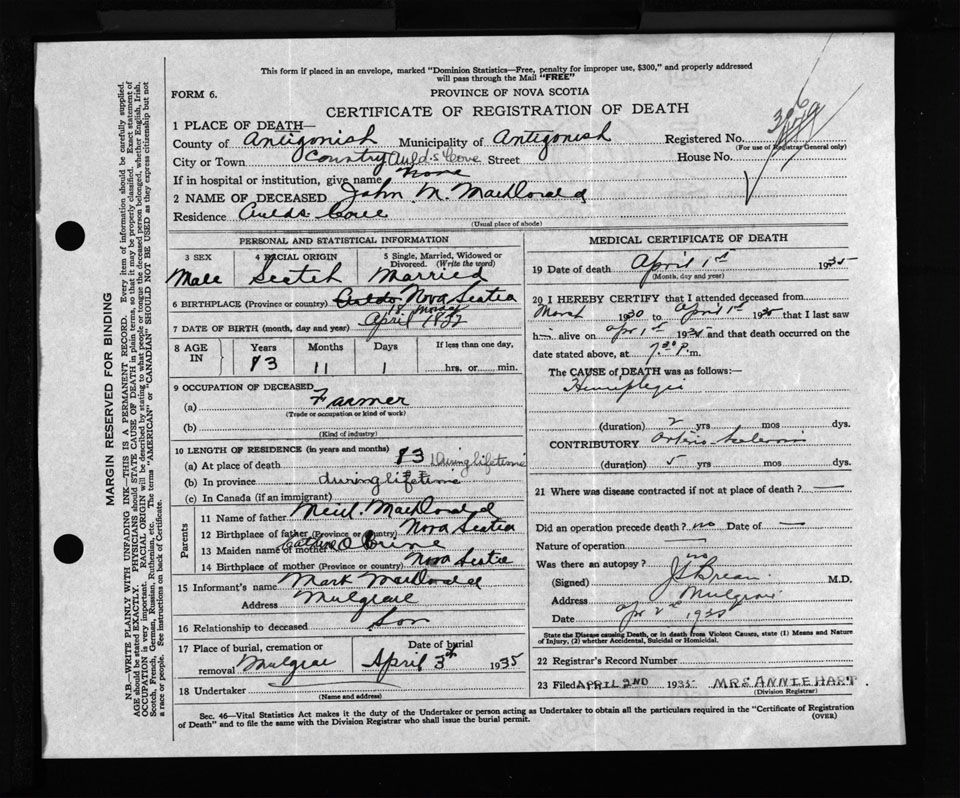 This form if placed in an envelope, marked "Dominion Statistics—Free, penalty for improper use, $300," and properly addressed
will pass through the Mail "FREE"
FORM 6.
PROVINCE OF NOVA SCOTIA
CERTIFICATE OF REGISTRATION OF DEATH
1 PLACE OF DEATH—
County of Antigonish Municipality of Antigonish Registered No.
(For use of Registrar General only)
City or Town Country Auld's Cove Street House No.
If in hospital or institution, give name None
2 NAME OF DECEASED John M. MacDonald
Residence Aulds Cove
(Usual place of abode)
PERSONAL AND STATISTICAL INFORMATION
3 SEX 4 RACIAL ORIGIN 5 Single, Married, Widowed or Divorced. (Write the word)
Male Scotch Married
6 BIRTHPLACE (Province or country) Nova Scotia
7 DATE OF BIRTH (month, day and year) April
8 AGE IN Years Months Days If less than one day,
83 11 1 hrs. or min.
9 OCCUPATION OF DECEASED
(a) Farmer
(Trade or occupation or kind of work)
(b)
(Kind of industry)
10 LENGTH OF RESIDENCE (in years and months)
(a) At place of death 83 During lifetime
(b) In province during lifetime
(c) In Canada (if an immigrant)
Parents
11 Name of father Neil. MacDonald
12 Birthplace of father (Province or country) Nova Scotia
13 Maiden name of mother Catherine O Brine
14 Birthplace of mother (Province or country) Nova Scotia
15 Informant's name Mark MacDonald
Address Mulgrave
16 Relationship to deceased Son
17 Place of burial, cremation or removal Mulgrave Date of burial April 3rd 1935
18 Undertaker
(Name and address)
MEDICAL CERTIFICATE OF DEATH
19 Date of death April 1st 1935
(Month, day and year)
20 I HEREBY CERTIFY that I attended deceased from
March 1930 to April 1st 1935 that I last saw
h alive on Apr 1st 1935 and that death occurred on
date stated above, at 7.30 P. m.
The CAUSE of DEATH was as follows:—
Hemiplegia
(duration) 2 yrs mos dys.
CONTRIBUTORY Arterio Sclerosis
(duration) 5 yrs mos dys.
21 Where was disease contracted if not at place of death? —
Did an operation precede death? no Date of —
Nature of operation —
Was there an autopsy? no
(Signed) M.D.
Address Mulgrave
Date Apr 2nd 1935
State the Disease causing Death, or in death from Violent Causes, state (1) Means and Nature
of Injury, (2) whether Accidental, Suicidal or Homicidal.
22 Registrar's Record Number
23 Filed APRIL 2ND 1935 MRS ANNIE HART.
(Division Registrar)
Sec. 46—Vital Statistics Act makes it the duty of the Undertaker or person acting as Undertaker to obtain all the particulars required in the "Certificate of Registration
of Death" and to file the same with the Division Registrar who shall issue the burial permit.
(OVER)
MARGIN RESERVED FOR BINDING
N.B.—WRITE PLAINLY WITH UNFADING INK—THIS IS A PERMANENT RECORD. Every item of information should be carefully supplied.
AGE should be stated EXACTLY. PHYSICIANS should STATE CAUSE OF DEATH in plain terms, so that it may be properly classified. Exact statement of
OCCUPATION is very important. RACIAL ORIGIN will be described by stating to what people or tongue the deceased person belonged, whether English, Irish,
Scotch, French, German, Russian, Ruthenian, etc. The terms "AMERICAN" or "CANADIAN" SHOULD NOT BE USED as they express citizenship but not
a race or people. See instructions on back of Certificate.